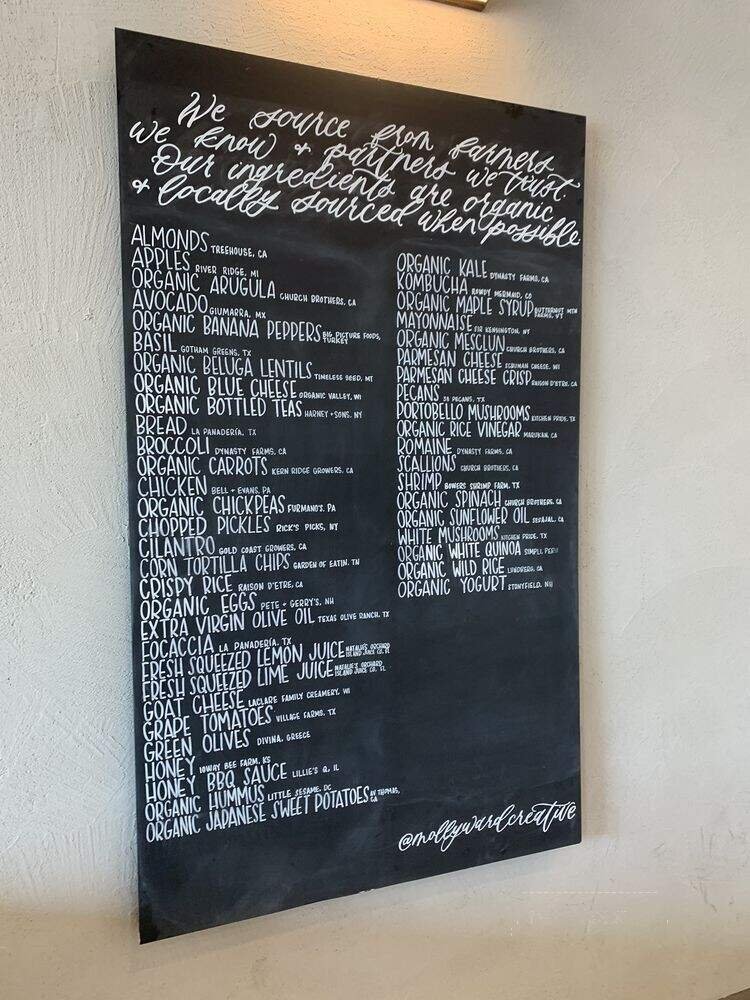 We source from farmers
we know + partners we trust.
Our ingredients are organic
+ locally sourced when possible
ALMONDS TREEHOUSE, CA
APPLES RIVER RIDGE, MI
ORGANIC ARUGULA CHURCH BROTHERS, CA
AVOCADO GIUMARRA, MX
ORGANIC BANANA PEPPERS BIG PICTURE FOODS, TURKEY
BASIL GOTHAM GREENS, TX
ORGANIC BELUGA LENTILS TIMELESS SEED, MT
ORGANIC BLUE CHEESE ORGANIC VALLEY, WI
ORGANIC BOTTLED TEAS HARNEY + SONS, NY
BREAD LA PANADERÍA, TX
BROCCOLI DYNASTY FARMS, CA
ORGANIC CARROTS KERN RIDGE GROWERS, CA
CHICKEN BELL + EVANS, PA
ORGANIC CHICKPEAS FURMANO'S, PA
CHOPPED PICKLES RICK'S PICKS, NY
CILANTRO GOLD COAST GROWERS, CA
CORN TORTILLA CHIPS GARDEN OF EATIN, TN
CRISPY RICE RAISON D'ETRE, CA
ORGANIC EGGS PETE + GERRY'S, NH
EXTRA VIRGIN OLIVE OIL TEXAS OLIVE RANCH, TX
FOCACCIA LA PANADERÍA, TX
FRESH SQUEEZED LEMON JUICE NATALIE'S ORCHARD ISLAND JUICE CO. FL
FRESH SQUEEZED LIME JUICE NATALIE'S ORCHARD ISLAND JUICE CO. FL
GOAT CHEESE LACLARE FAMILY CREAMERY, WI
GRAPE TOMATOES VILLAGE FARMS, TX
GREEN OLIVES DIVINA, GREECE
HONEY IOWAY BEE FARM, KS
HONEY BBQ SAUCE LILLIE'S Q, IL
ORGANIC HUMMUS LITTLE SESAME, DC
ORGANIC JAPANESE SWEET POTATOES AV THOMAS, CA
ORGANIC KALE DYNASTY FARMS, CA
KOMBUCHA ROWDY MERMAID, CO
ORGANIC MAPLE SYRUP BUTTERNUT MTN FARMS, VT
MAYONNAISE SIR KENSINGTON, NY
ORGANIC MESCLUN CHURCH BROTHERS, CA
PARMESAN CHEESE SCHUMAN CHEESE, WI
PARMESAN CHEESE CRISP RAISON D'ETRE, CA
PECANS PECANS, TX
PORTOBELLO MUSHROOMS KITCHEN PRIDE, TX
ORGANIC RICE VINEGAR MARUKAN, CA
ROMAINE DYNASTY FARMS, CA
SCALLIONS CHURCH BROTHERS, CA
SHRIMP BOWERS SHRIMP FARM, TX
ORGANIC SPINACH CHURCH BROTHERS, CA
ORGANIC SUNFLOWER OIL CA
WHITE MUSHROOMS KITCHEN PRIDE, TX
ORGANIC WHITE QUINOA SIMPLI, PERU
ORGANIC WILD RICE LUNDBERG, CA
ORGANIC YOGURT STONYFIELD, NH
@mollywardcreative